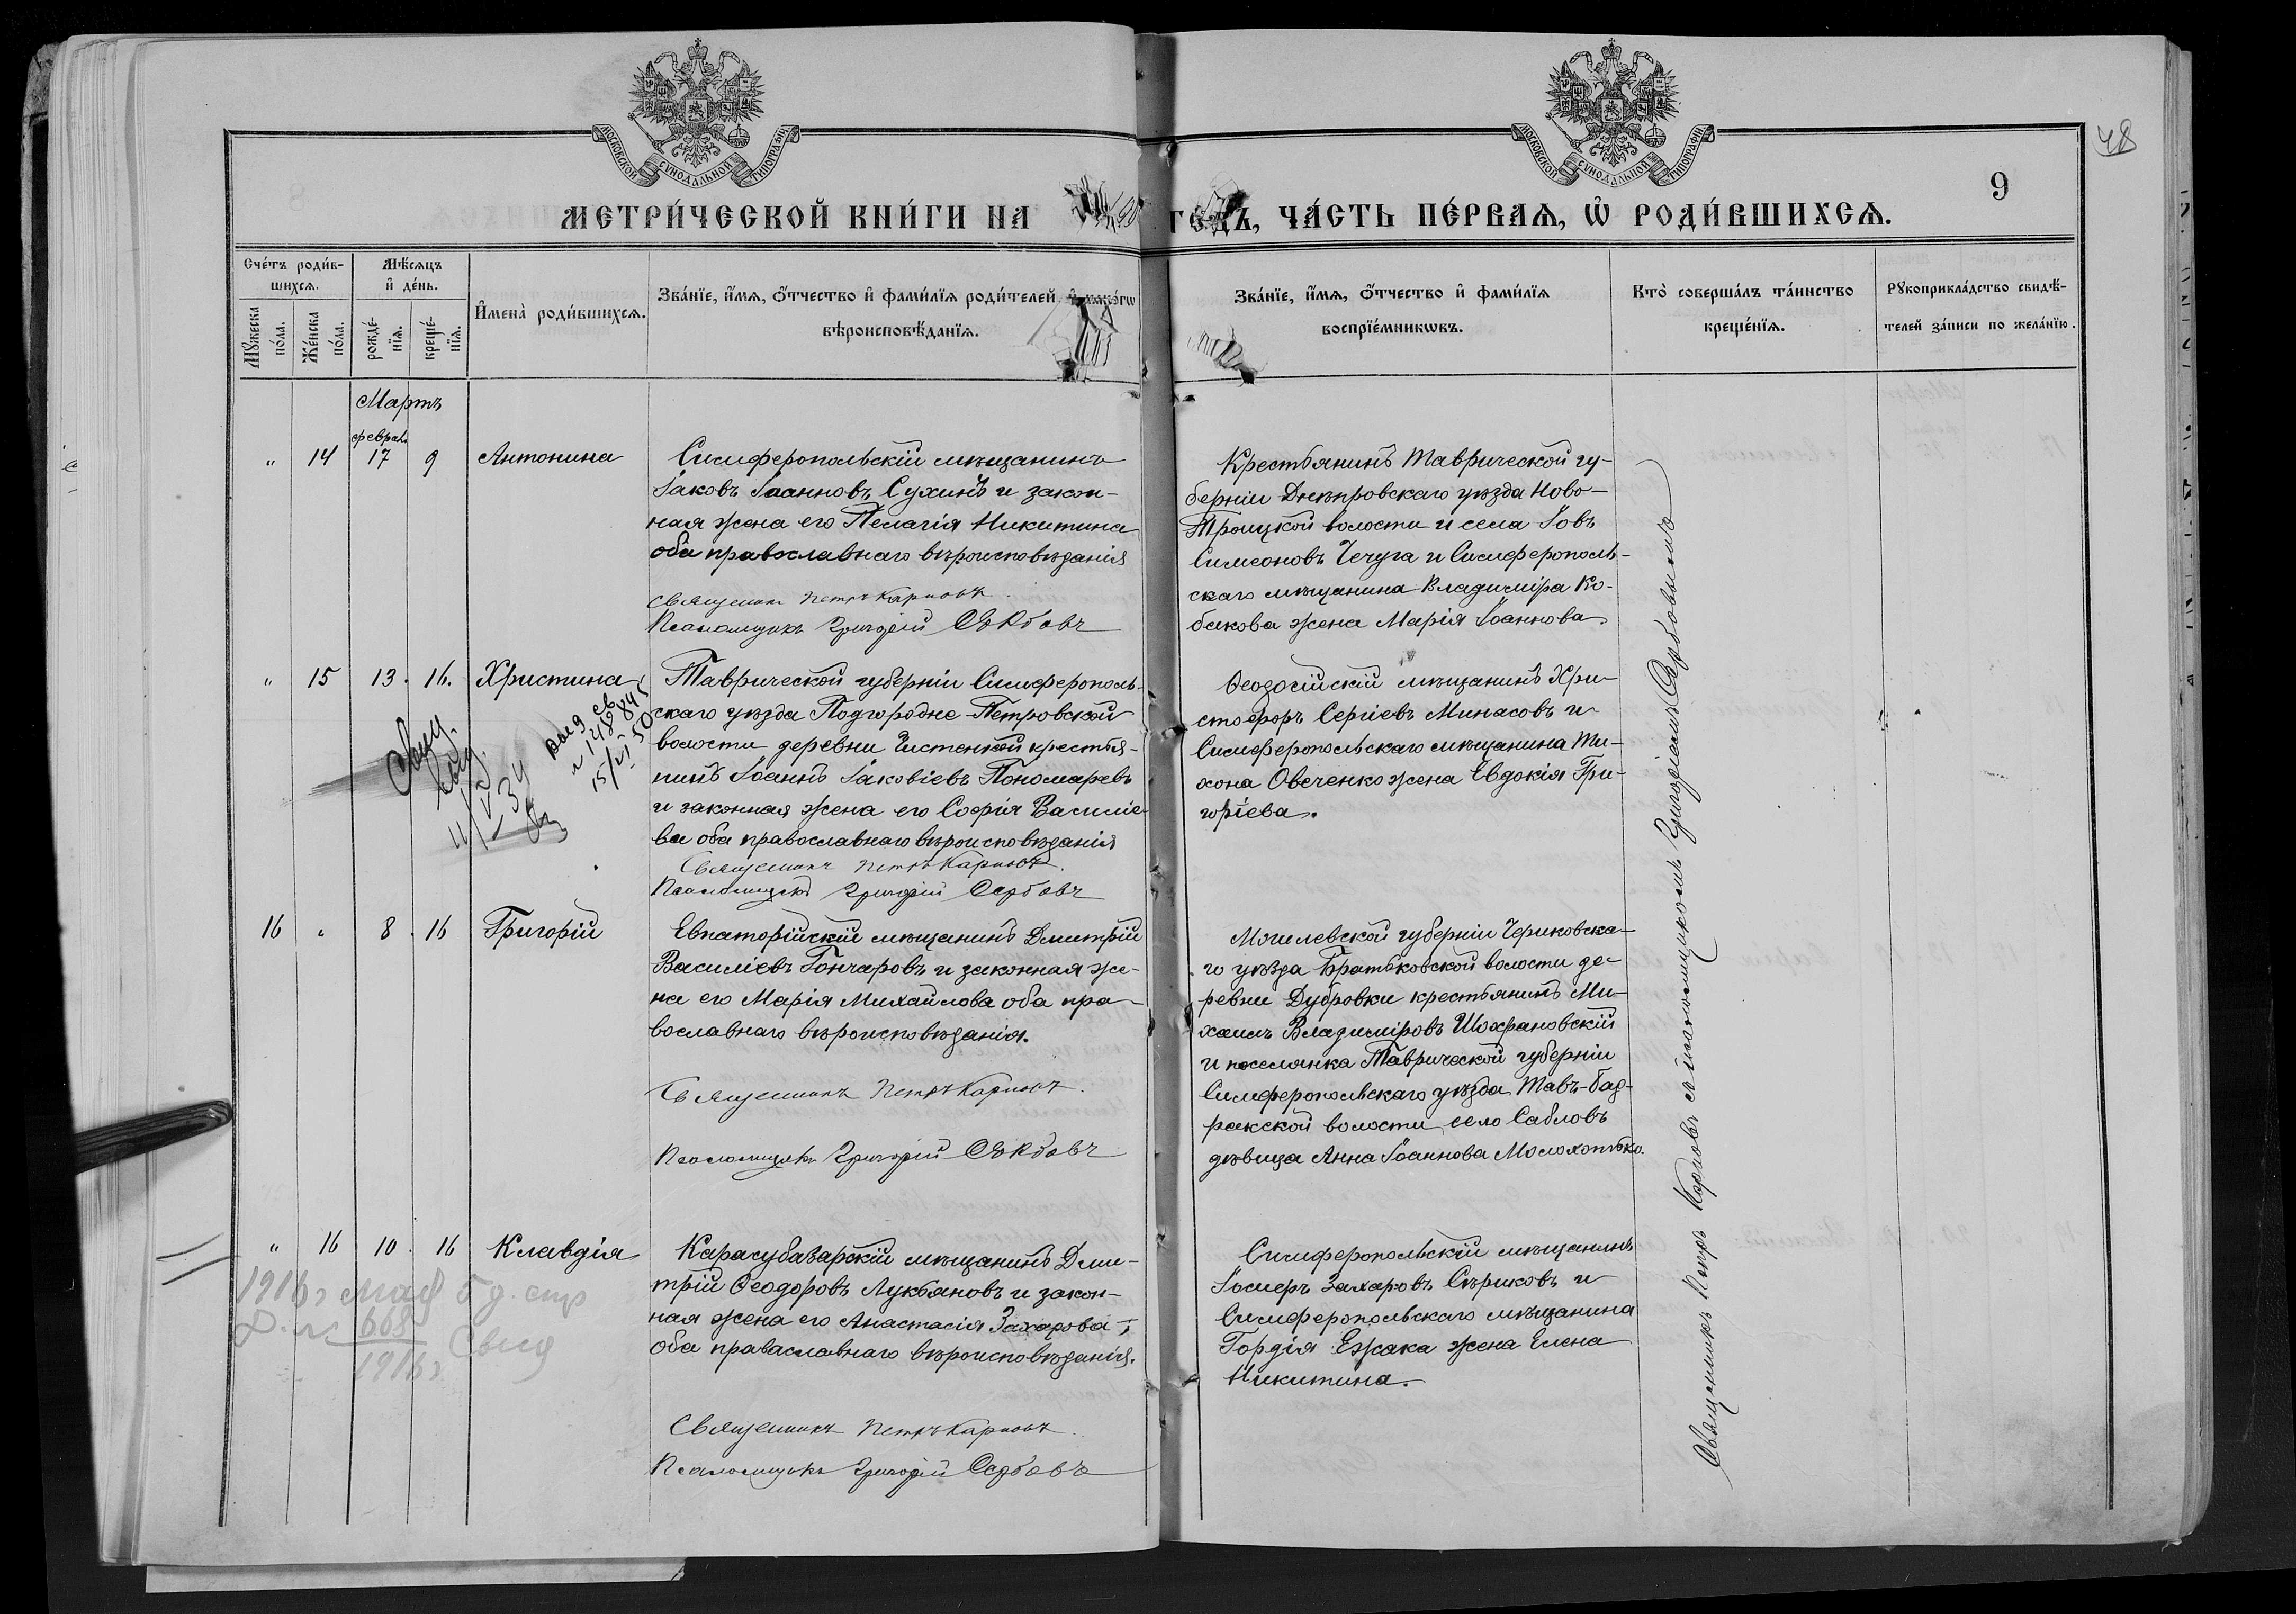 МОСКОВСКОЙ СѴНОДАЛЬНОЙ ТИПОГРАФІИ
МОСКОВСКОЙ СѴНОДАЛЬНОЙ ТИПОГРАФІИ
48
9
МЕТРИ́ЧЕСКОЙ КНИ́ГИ НА ГОДЪ, ЧА́СТЬ ПЕ́РВАѦ, Ѡ҆ РОДИ́ВШИХСѦ.
Сче́тъ роди́в-
шихсѧ.
Мꙋ́жеска по́ла.
Же́нска по́ла.
Мѣ́сѧцъ
и҆ де́нь.
рожде́-
нїѧ.
креще́-
нїѧ.
И҆мена̀ роди́вшихсѧ.
Зва́нїе, и҆́мѧ, ѻ҆́тчество и҆ фами́лїѧ роди́телей, и҆ како́гѡ
вѣроисповѣ́данїѧ.
Зва́нїе, и҆́мѧ, ѻ҆́тчество и҆ фами́лїѧ
воспрїе́мникѡвъ.
Кто̀ соверша́лъ та́инство
креще́нїѧ.
Рꙋкоприкла́дство свидѣ́-
телей за́писи по жела́нїю.
Мартъ
феврал.
" 14 17 9 Антонина
Симферопольскій мѣщанинъ
Іаковъ Іоанновъ Сухинъ и закон-
ная жена его Пелагія Никитина
оба православнаго вѣроисповѣданія
Священникъ Петръ Карповъ.
Псаломщикъ Григорій Сербовъ
Крестьянинъ Таврической гу-
берніи Днѣпровскаго уѣзда Ново-
Троицкой волости и села Іовъ
Симеоновъ Чечуга и Симферополь-
скаго мѣщанина Владиміра Ко-
бакова жена Марія Іоаннова.
" 15 13. 16. Христина
Таврической губерніи Симферополь-
скаго уѣзда Подгородне-Петровской
волости деревни Чистенкой крестья-
нинъ Іоаннъ Іаковіевъ Пономаревъ
и законная жена его Софія Василіе-
ва оба православнаго вѣроисповѣданія
Священникъ Петръ Карповъ.
Псаломщикъ Григорій Сербовъ
выд св
15/VI 50
11/V 34
Ѳеодосійскій мѣщанинъ Хри-
стофоръ Сергіевъ Минасовъ и
Симферопольскаго мѣщанина Ти-
хона Овеченко жена Евдокія Гри-
горіева.
16 " 8. 16 Григорій
Евпаторійскій мѣщанинъ Дмитрій
Василіевъ Гончаровъ и законная же-
на его Марія Михайлова оба пра-
вославнаго вѣроисповѣданія.
Священникъ Петръ Карповъ.
Псаломщикъ Григорій Сербовъ
Могилевской губерніи Чериковска-
го уѣзда Братьковской волости де-
ревни Дубровки крестьянинъ Ми-
хаилъ Владиміровъ Шохрановскій
и поселянка Таврической губерніи
Симферопольскаго уѣзда Тавъ-бад-
ракской волости село Сабловъ
дѣвица Анна Іоаннова Молохотько.
" 16 10. 16 Клавдія
Карасубазарскій мѣщанинъ Дми-
трій Ѳеодоровъ Лукьяновъ и закон-
ная жена его Анастасія Захарова
оба праваславнаго вѣроисповѣданія.
Священникъ Петръ Карповъ.
Псаломщикъ Григорій Сербовъ
1916 г мая 5 д.
668
1916 г
Симферопольскій мѣщанинъ
Іосифъ Захаровъ Сѣриковъ и
Симферопольскаго мѣщанина
Гордія Ежака жена Елена
Никитина.
Священникъ Петръ Карповъ съ псаломщикомъ Григоріемъ Сербовымъ